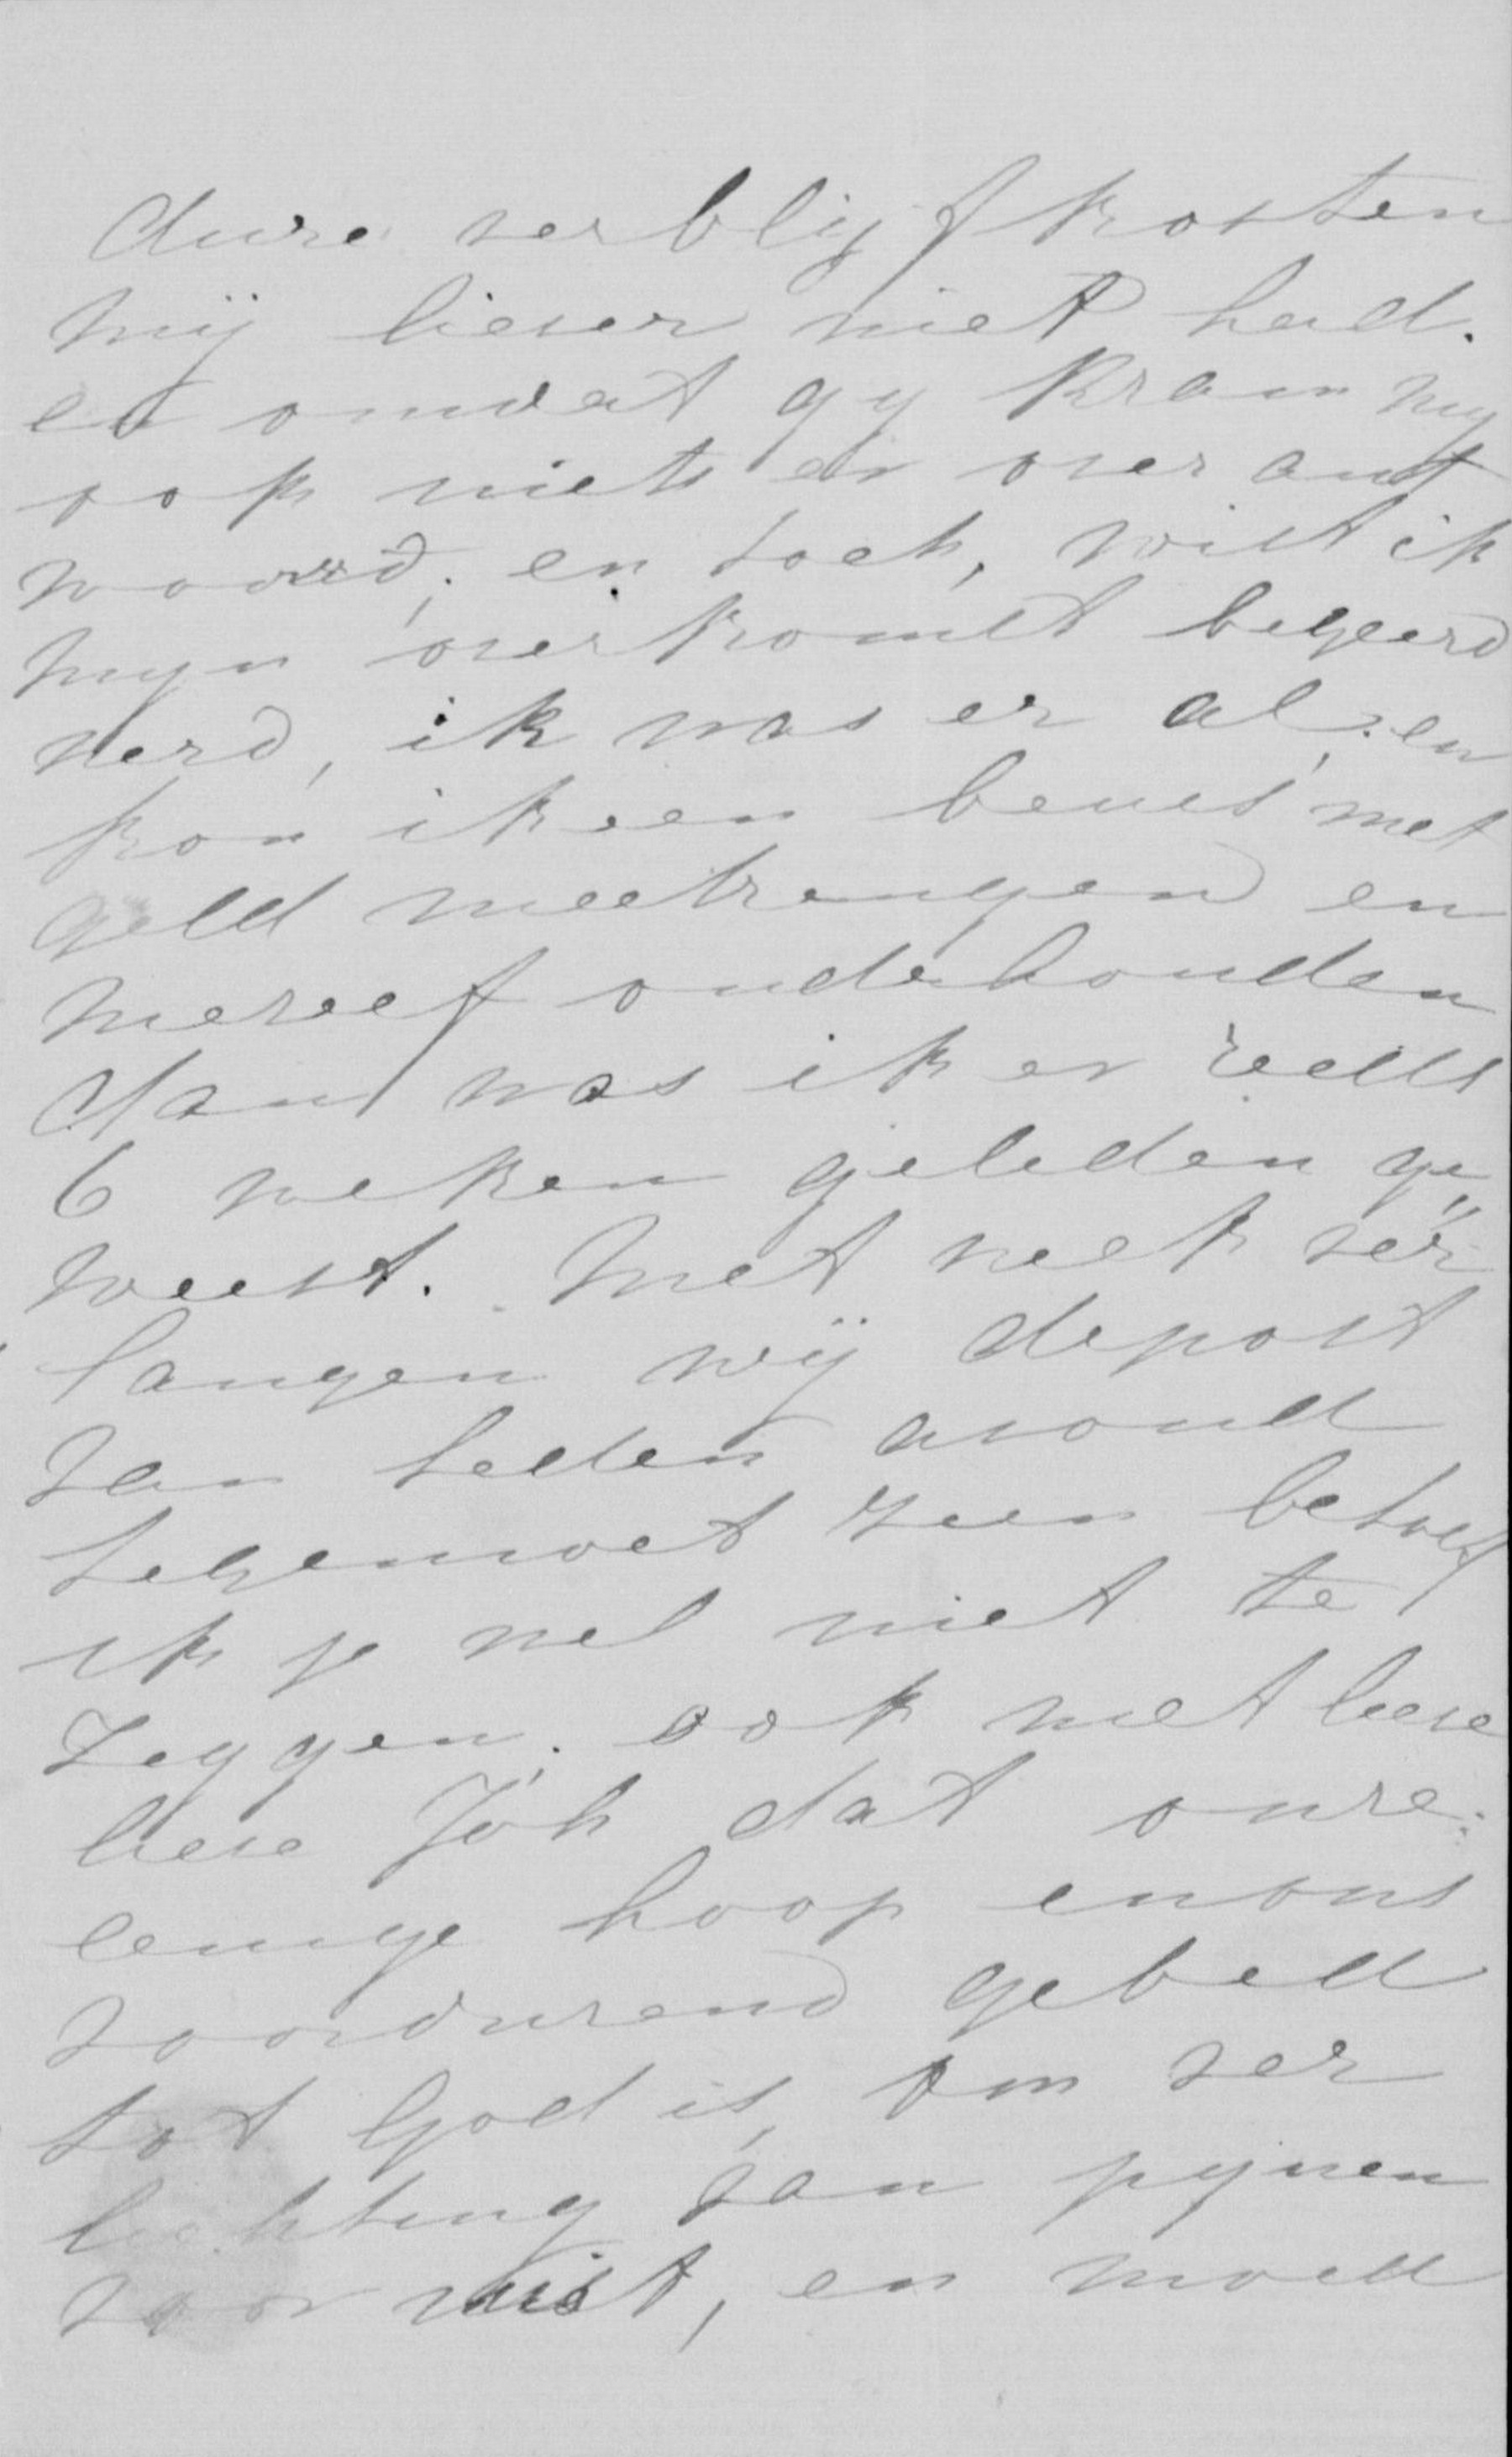 dure verblijfkosten
mij liever niet had.
en omdat gy kram my
ook niets er over ant
woord; en toch, wist ik
myn overkomst begeerd
werd, ik was er al; en
kon ik een beurs met
geld meebrengen en
mezelf onderhouden
dan was ik er reeds
6 weken geleden ge„
weest. Met welk ver„
langen wij de post
van heden avond
tegemoet zien behoef
ik je wel niet te
zeggen. ook niet lieve
lieve Joh dat onze
eenige hoop en ons
voordurend gebed
tot God is, om ver
lichting van pijnen
voor wist, en moed